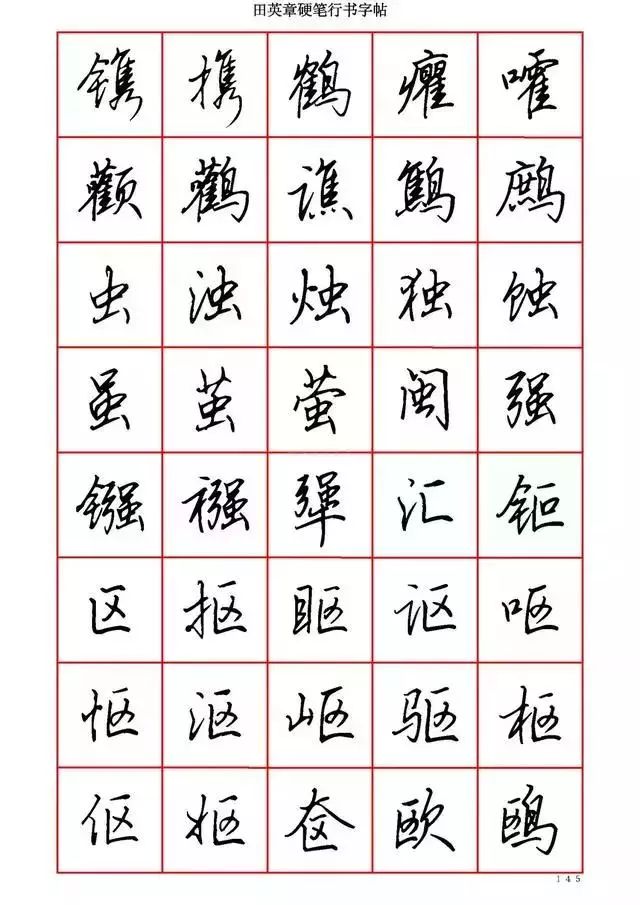 田英章硬笔行书字帖
镌携鹤癯嚯
颧鹳谯鹪鹧
虫浊烛独蚀
虽茧萤闽强
镪襁犟汇钷
区抠眍讴呕
怄沤岖驱枢
伛妪奁欧鸥
145